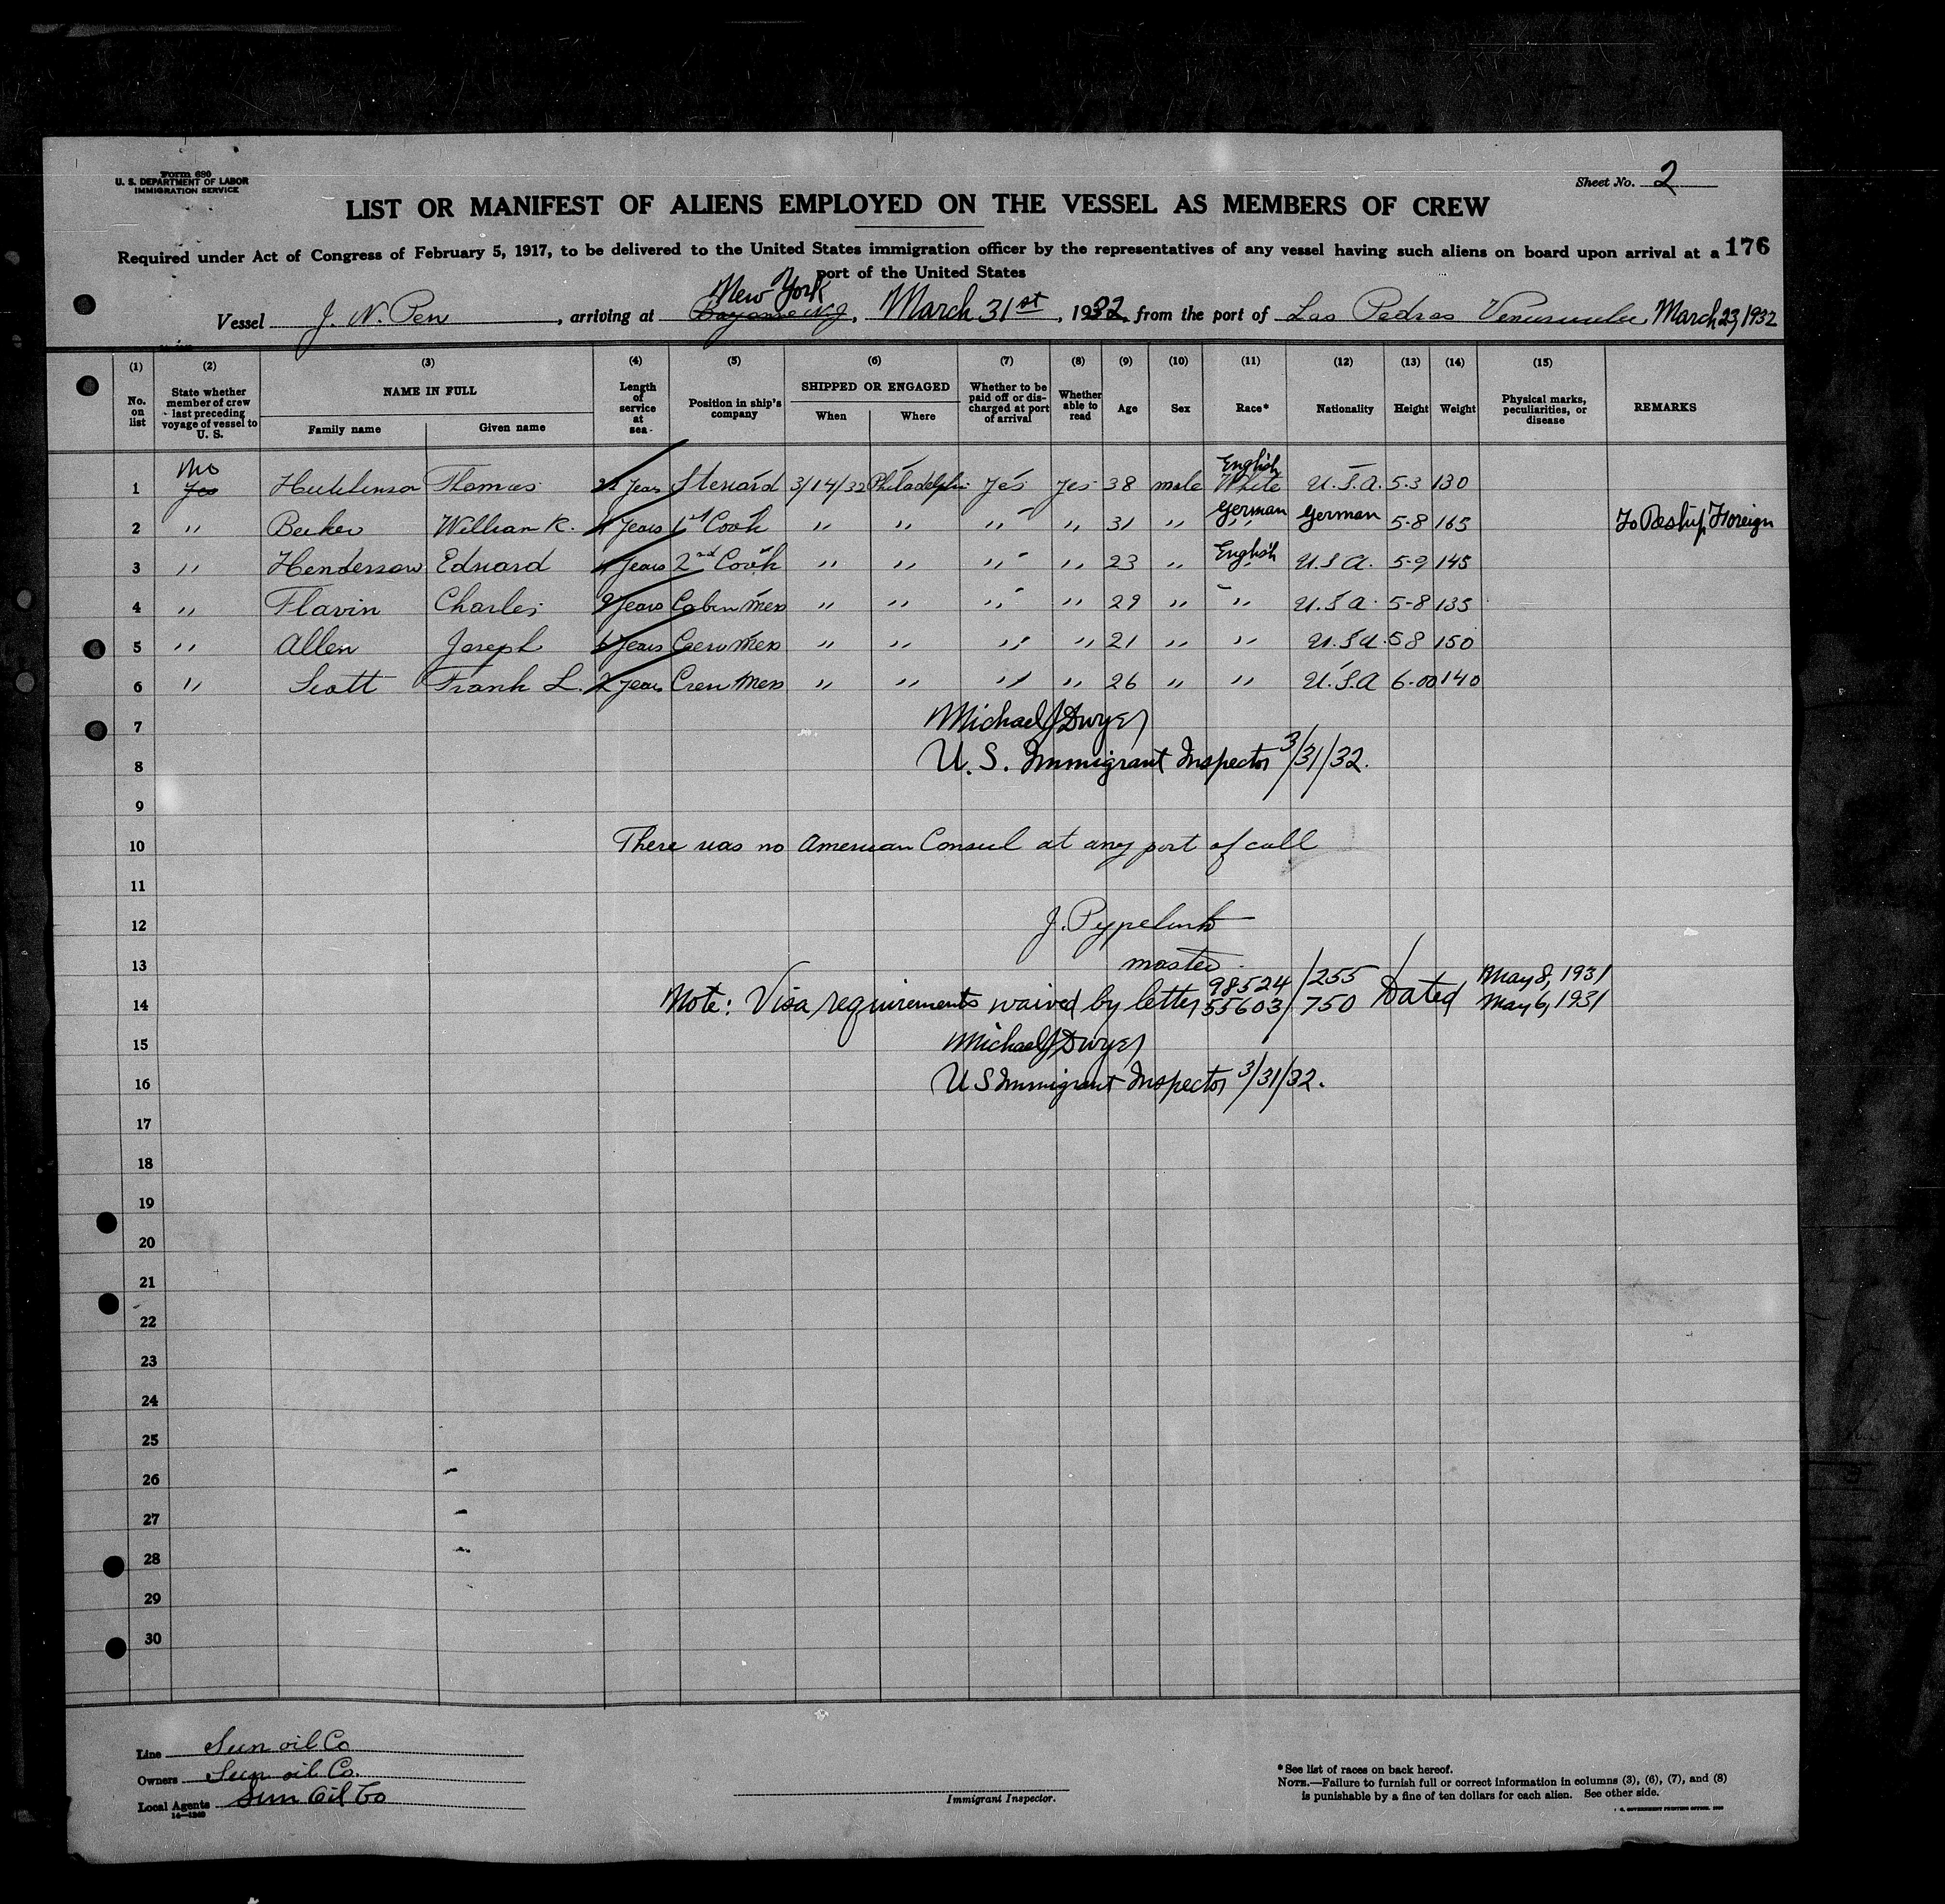 Form 680
U. S. DEPARTMENT OF LABOR
IMMIGRATION SERVICE
Sheet No. 2
LIST OR MANIFEST OF ALIENS EMPLOYED ON THE VESSEL AS MEMBERS OF CREW
Required under Act of Congress of February 5, 1917, to be delivered to the United States immigration officer by the representatives of any vessel having such aliens on board upon arrival at a 176
port of the United States
New York
Vessel J. N. Pew, arriving at Bayonne N J, March 31st, 1932, from the port of Las Pedras Venezuela, March 23, 1932
(1) (2) (3) (4) (5) (6) (7) (8) (9) (10) (11) (12) (13) (14) (15)
No. on list State whether member of crew last preceding voyage of vessel to U. S. NAME IN FULL Family name Given name Length of service at sea Position in ship's company SHIPPED OR ENGAGED When Where Whether to be paid off or discharged at port of arrival Whether able to read Age Sex Race* Nationality Height Weight Physical marks, peculiarities, or disease REMARKS
No English
1 Yes Hutchinson Thomas years Steward 3/14/32 Philadelphia yes yes 38 male White U.S.A. 5-3 130
2 " Becker William R. years 1st Cook " " " " 31 " German German 5-8 165 To Reship Foreign
3 " Henderson Edward years 2nd Cook " " " " 23 " English U.S.A. 5-9 145
4 " Flavin Charles 9 years Cabin Mess " " " " 29 " " U.S.A. 5-8 135
5 " Allen Joseph years Crew Mess " " " " 21 " " U.S.A. 5 8 150
6 " Scott Frank L. 2 years Crew Mess " " " " 26 " " U.S.A 6-00 140
7 Michael J Dwyer
8 U. S. Immigrant Inspector 3/31/32.
9
10 There was no American Consul at any port of call
11
12 J. Pypelink
13 master
98524/255 May 8, 1931
14 Note: Visa requirements waived by letter 55603/750 Dated May 6, 1931
15 Michael J Dwyer
16 U S Immigrant Inspector 3/31/32.
17
18
19
20
21
22
23
24
25
26
27
28
29
30
Line Sun oil Co
Owners Sun oil Co.
Local Agents Sun Oil Co
14—1240
Immigrant Inspector.
*See list of races on back hereof.
NOTE.—Failure to furnish full or correct information in columns (3), (6), (7), and (8)
is punishable by a fine of ten dollars for each alien. See other side.